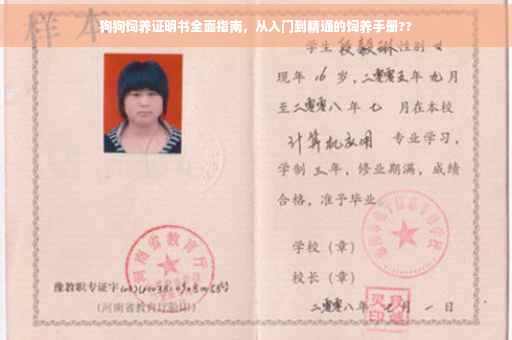 样本
狗狗饲养证明书全面指南，从入门到精通的饲养手册??
学生 段毅琳 性别 女
现年 16 岁，二零零五年 九月
至二零零八年 七 月在本校
计算机应用 专业学习，
学制 三 年，修业期满，成绩
合格，准予毕业。
学校（章）
校长（章）
二零零八年 七 月 一 日
河南省教育厅
豫教职专证字
(河南省教育厅验印)